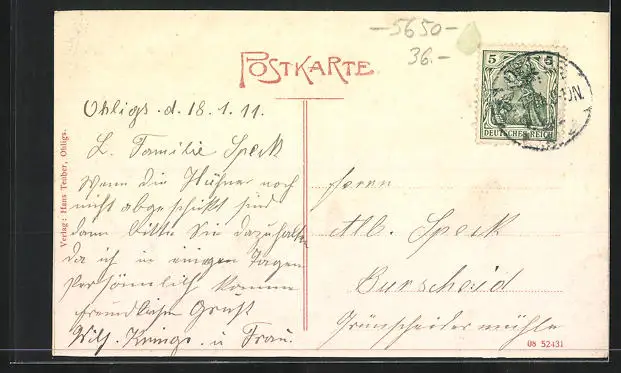 -5650-
36.-
POSTKARTE
5 5
DEUTSCHES REICH
Ohligs. d. 18.1.11.
L. Familie Speck
Wenn die Hühner noch
nicht abgeschikt sind
dann bitte Sie dazuhalten
da ich in einigen Tagen
Persönnlich komme
freundlichen Gruß
Wilh. Krings u Frau.
Herrn
Alb. Speck
Burscheid
Grünscheidermühle
Verlag: Hans Teuber, Ohligs.
08 52431